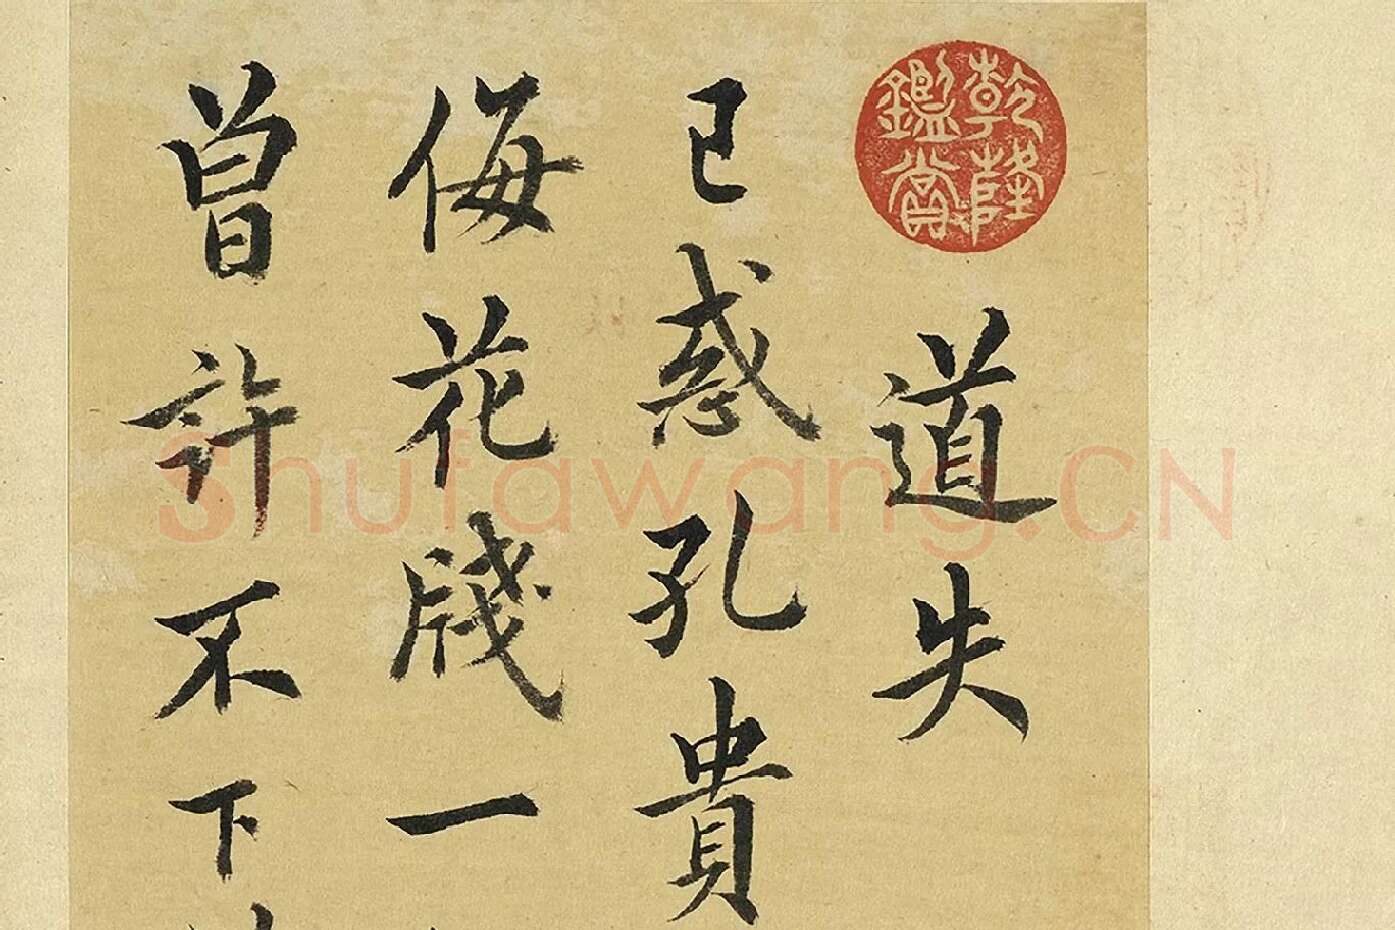 乾隆
鑑賞
道失
已惑孔貴
侮花牋一
曾許不下
Shufawang.CN